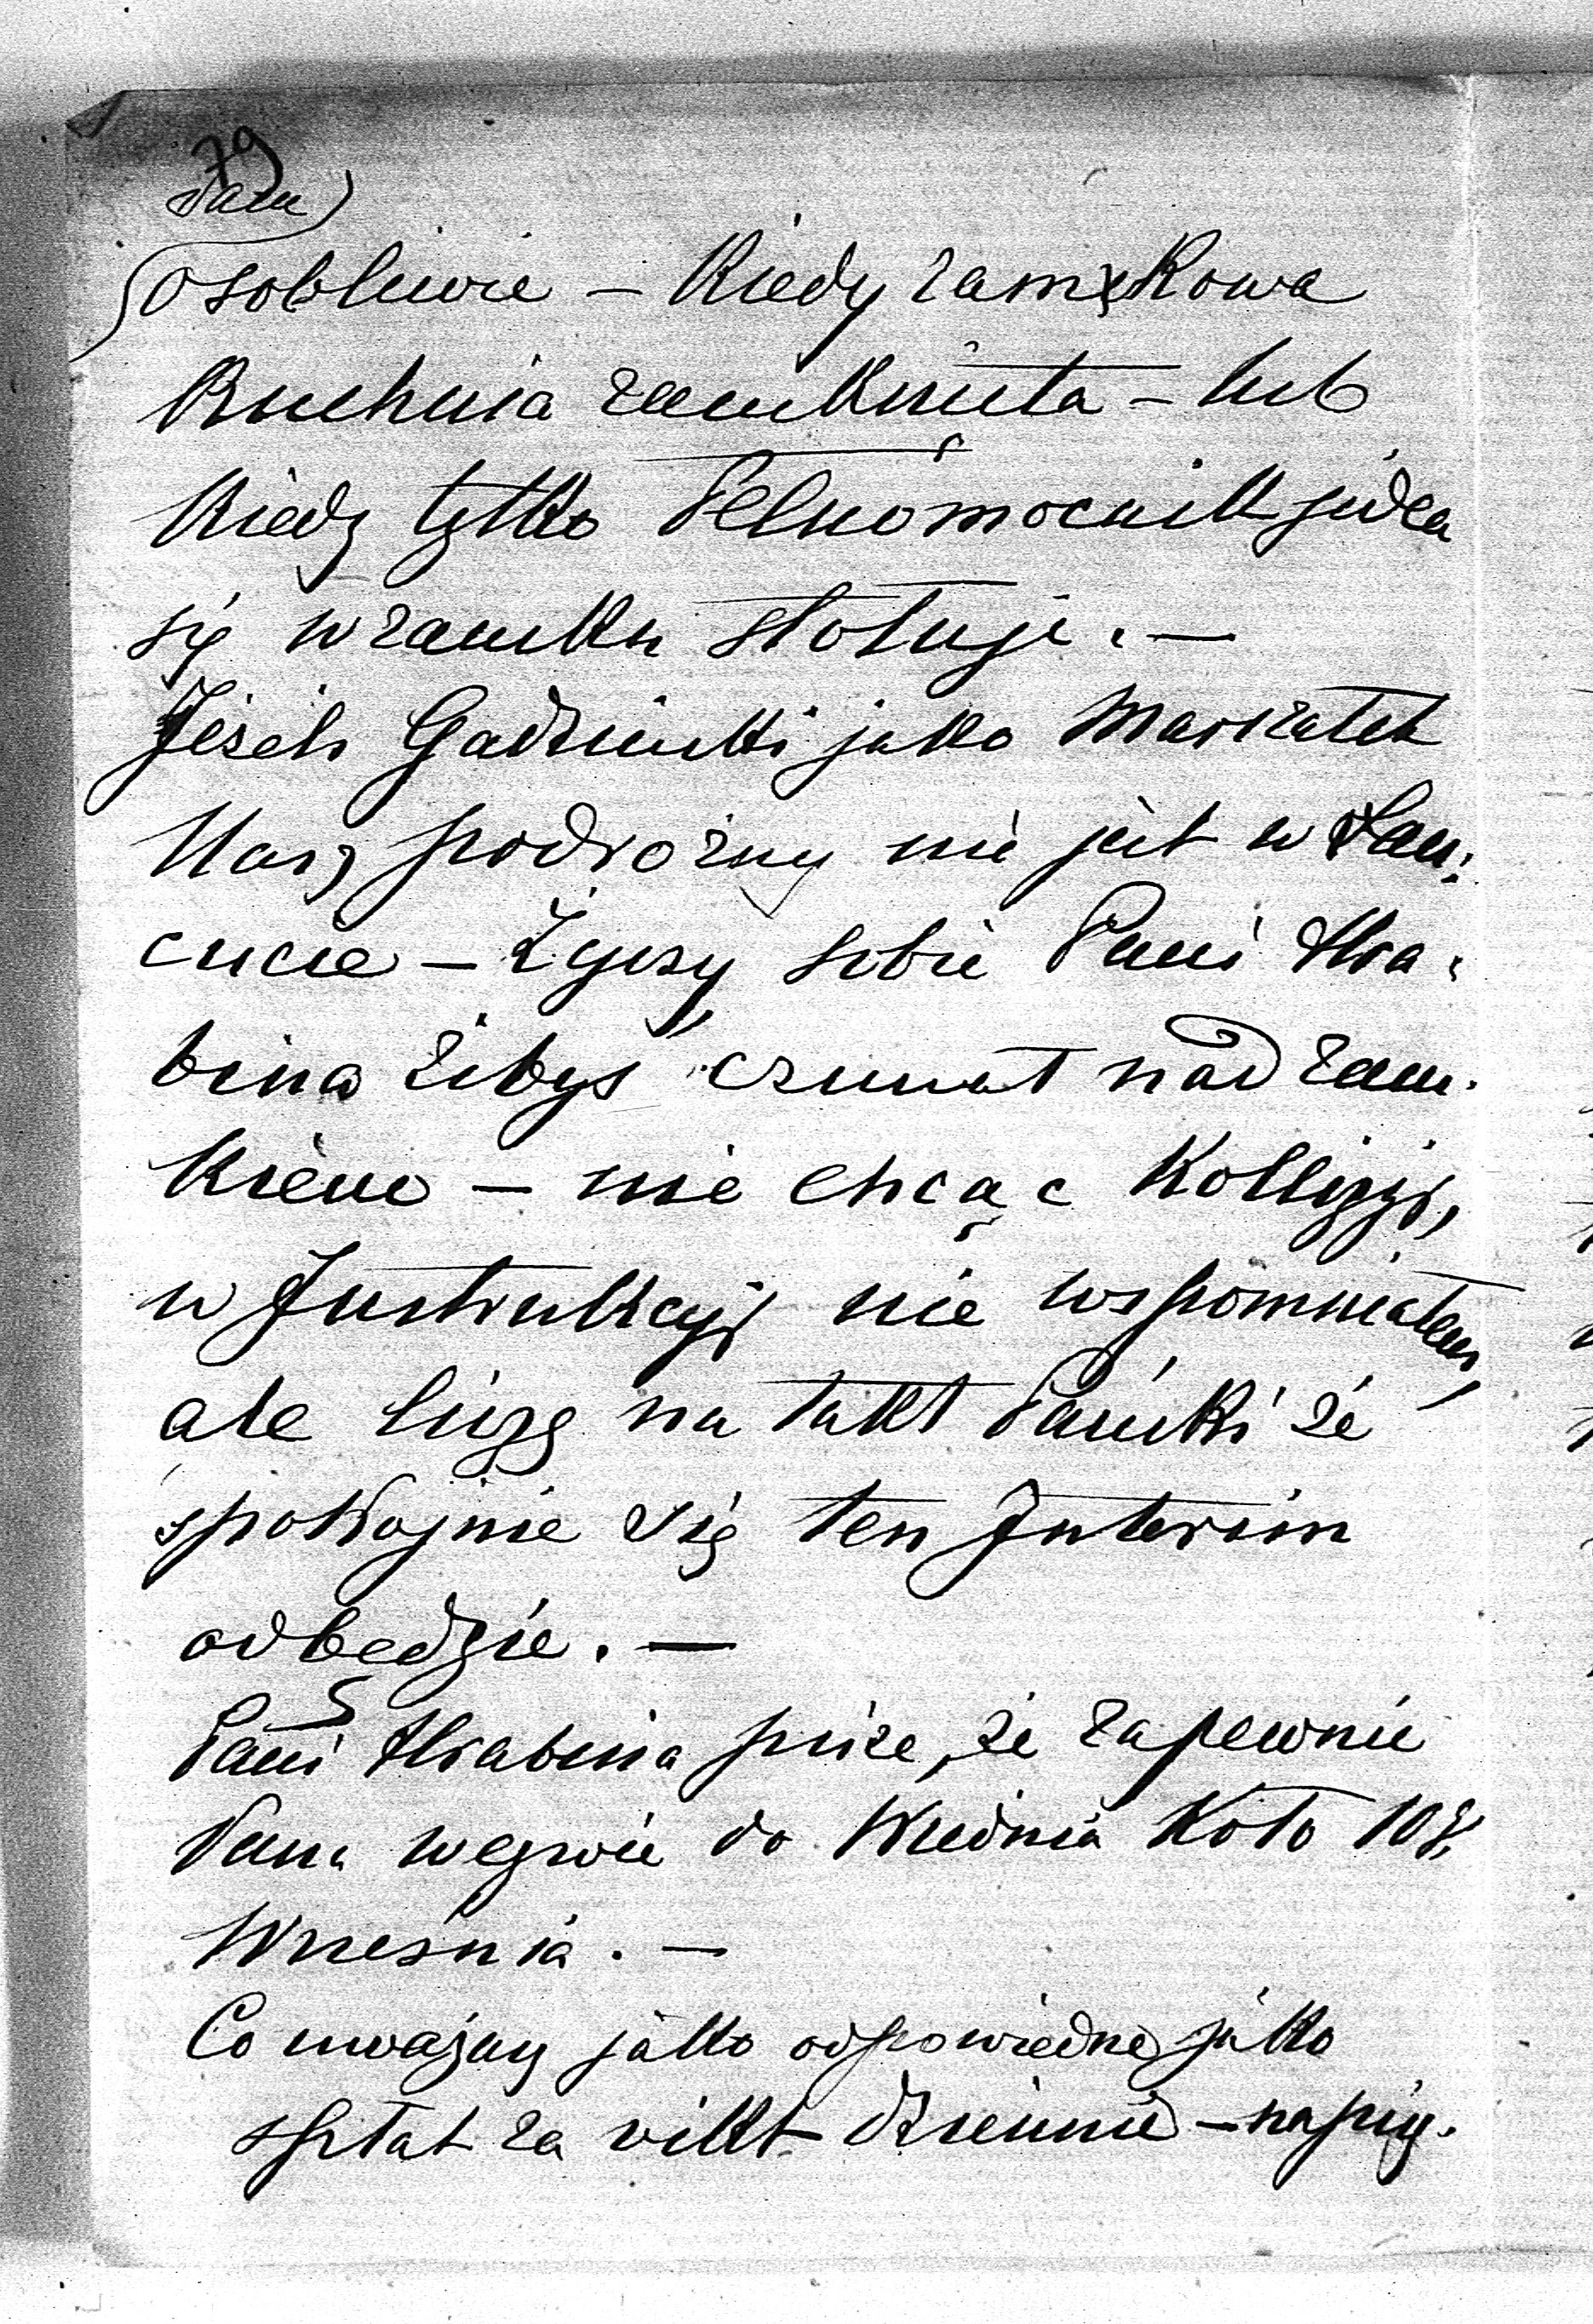 79
Pana
osobliwie – Kiedy zamkowa
Kuchnia zamknięta – lub
Kiedy tylko Pełnomocnik jeden
się w zamku stołuje. —
Jeżeli Gadziński jako Marszałek
Nasz podrożny nie jest w Łań:
cucie – Życzy sobie Pani Hra:
bina żebyś czuwał nad zam:
kiem – nie chcąc Kollizyi,
w Instrukcyi nie wspomniałem,
ale liczę na takt Pański że
spokojnie się ten Interim
odbędzie. —
Pani Hrabina pisze, że zapewnie
Pana wezwie do Wiednia koło 10g.
Września. —
Co uważasz jako odpowiedne jako
spłat za vikt dziennie – napisz.